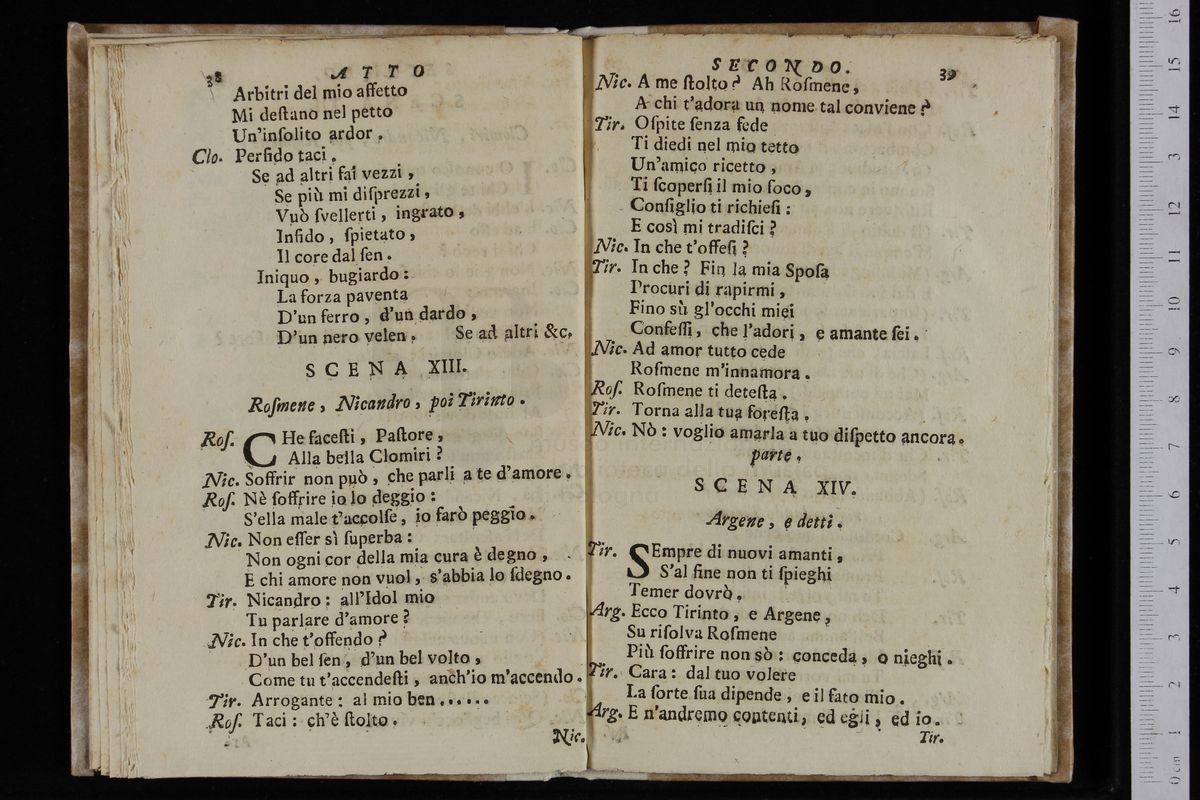 38
ATTO
Arbitri del mio affetto
Mi deſtano nel petto
Un'inſolito ardor.
Clo. Perfido taci.
Se ad altri fai vezzi,
Se più mi diſprezzi,
Vuò ſvellerti, ingrato,
Infido, ſpietato,
Il core dal ſen.
Iniquo, bugiardo:
La forza paventa
D'un ferro, d'un dardo,
D'un nero velen. Se ad altri &c.
SCENA XIII.
Roſmene, Nicandro, poi Tirinto.
Roſ. CHe faceſti, Paſtore,
Alla bella Clomiri?
Nic. Soffrir non può, che parli a te d'amore.
Roſ. Nè ſoffrire io lo deggio:
S'ella male t'accolſe, io farò peggio.
Nic. Non eſſer sì ſuperba:
Non ogni cor della mia cura è degno,
E chi amore non vuol, s'abbia lo ſdegno.
Tir. Nicandro: all'Idol mio
Tu parlare d'amore?
Nic. In che t'offendo?
D'un bel ſen, d'un bel volto,
Come tu t'accendeſti, anch'io m'accendo.
Tir. Arrogante: al mio ben......
Roſ. Taci: ch'è ſtolto.
Nic.
SECONDO.
39
Nic. A me ſtolto? Ah Roſmene,
A chi t'adora un nome tal conviene?
Tir. Oſpite ſenza fede
Ti diedi nel mio tetto
Un'amico ricetto,
Ti ſcoperſi il mio foco,
Conſiglio ti richieſi:
E così mi tradiſci?
Nic. In che t'offeſi?
Tir. In che? Fin la mia Spoſa
Procuri di rapirmi,
Fino sù gl'occhi miei
Confeſſi, che l'adori, e amante ſei.
Nic. Ad amor tutto cede
Roſmene m'innamora.
Roſ. Roſmene ti deteſta.
Tir. Torna alla tua foreſta.
Nic. Nò: voglio amarla a tuo diſpetto ancora.
parte.
SCENA XIV.
Argene, e detti.
Tir. SEmpre di nuovi amanti,
S'al fine non ti ſpieghi
Temer dovrò.
Arg. Ecco Tirinto, e Argene,
Su riſolva Roſmene
Più ſoffrire non sò: conceda, o nieghi.
Tir. Cara: dal tuo volere
La ſorte ſua dipende, e il fato mio.
Arg. E n'andremo contenti, ed egli, ed io.
Tir.
0 cm 1 2 3 4 5 6 7 8 9 10 11 12 13 14 15 16